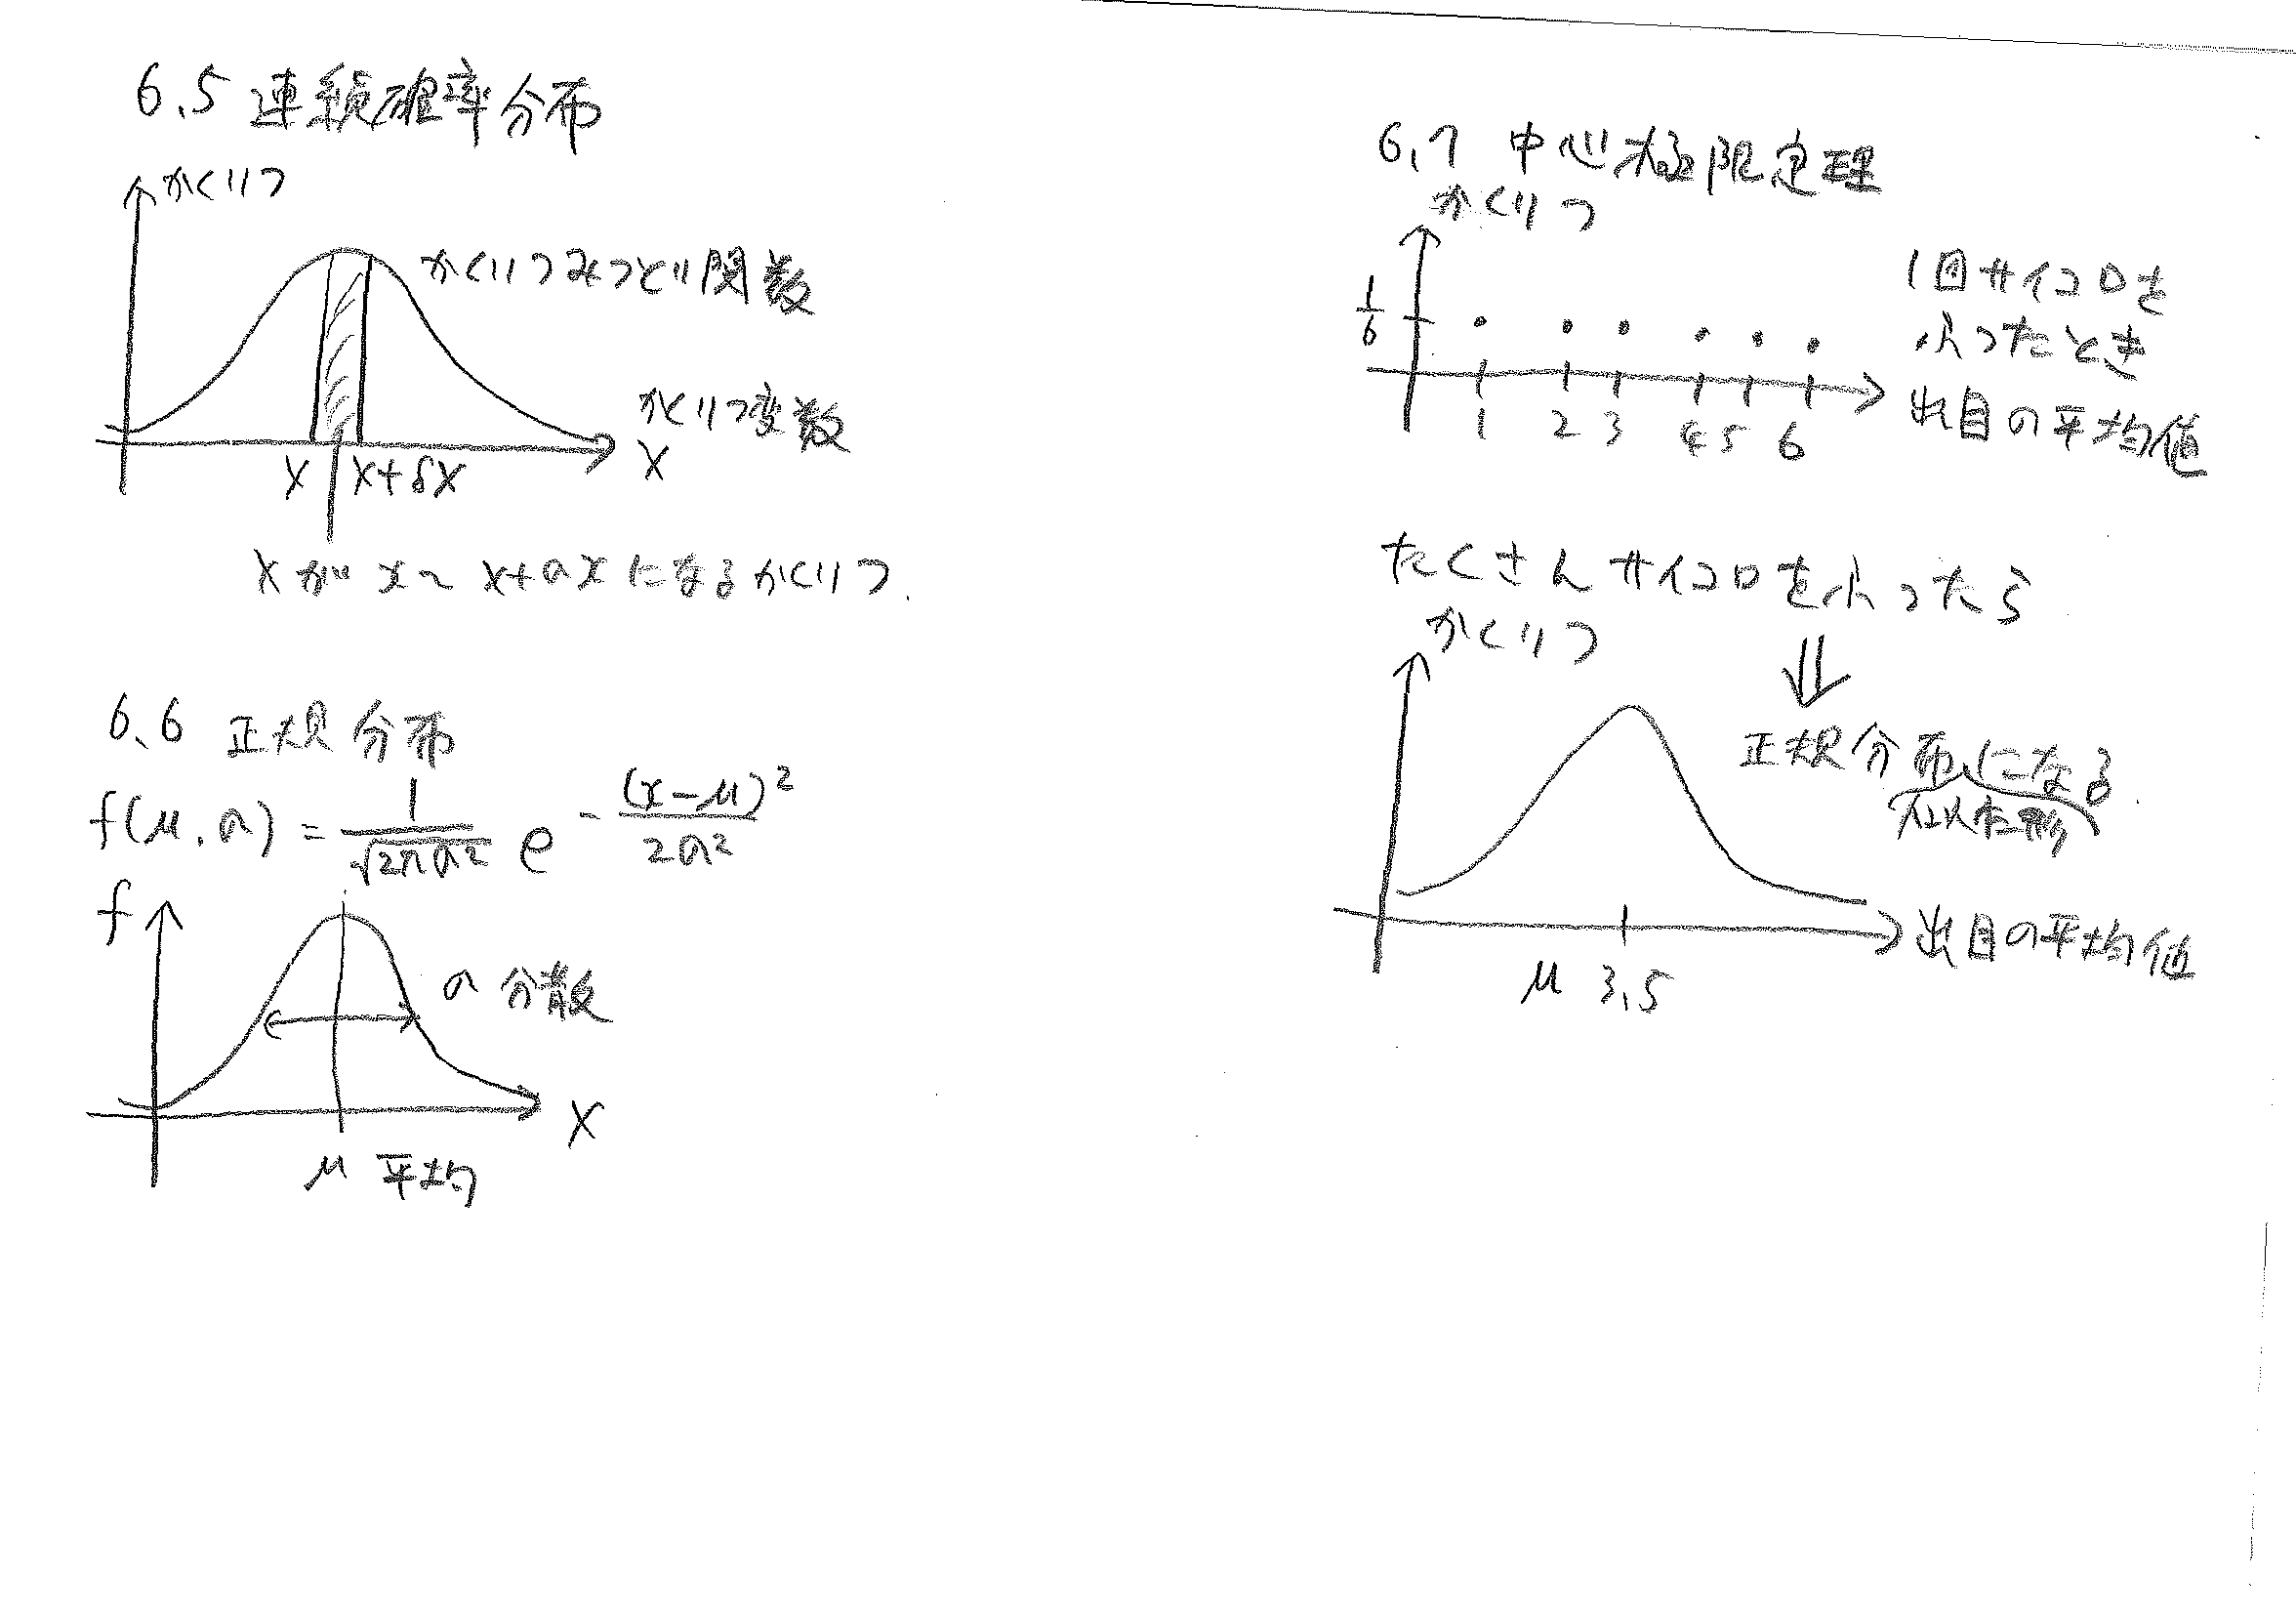 6.5 連続確率分布
かくりつ
かくりつみつどり関数
かくりつ変数
x x+δx x
xが x〜x+σxになるかくりつ.
6.6 正規分布
f(μ.σ) = 1/√2πσ² e -(x-μ)²/2σ²
f
σ 分散
x
μ 平均
6.7 中心極限定理
かくりつ
1回サイコロを
ふったとき
1/6
1 2 3 4 5 6
出目の平均値
たくさんサイコロをふったら
かくりつ
⇓
正規分布になる.
似た形
出目の平均値
μ 3.5